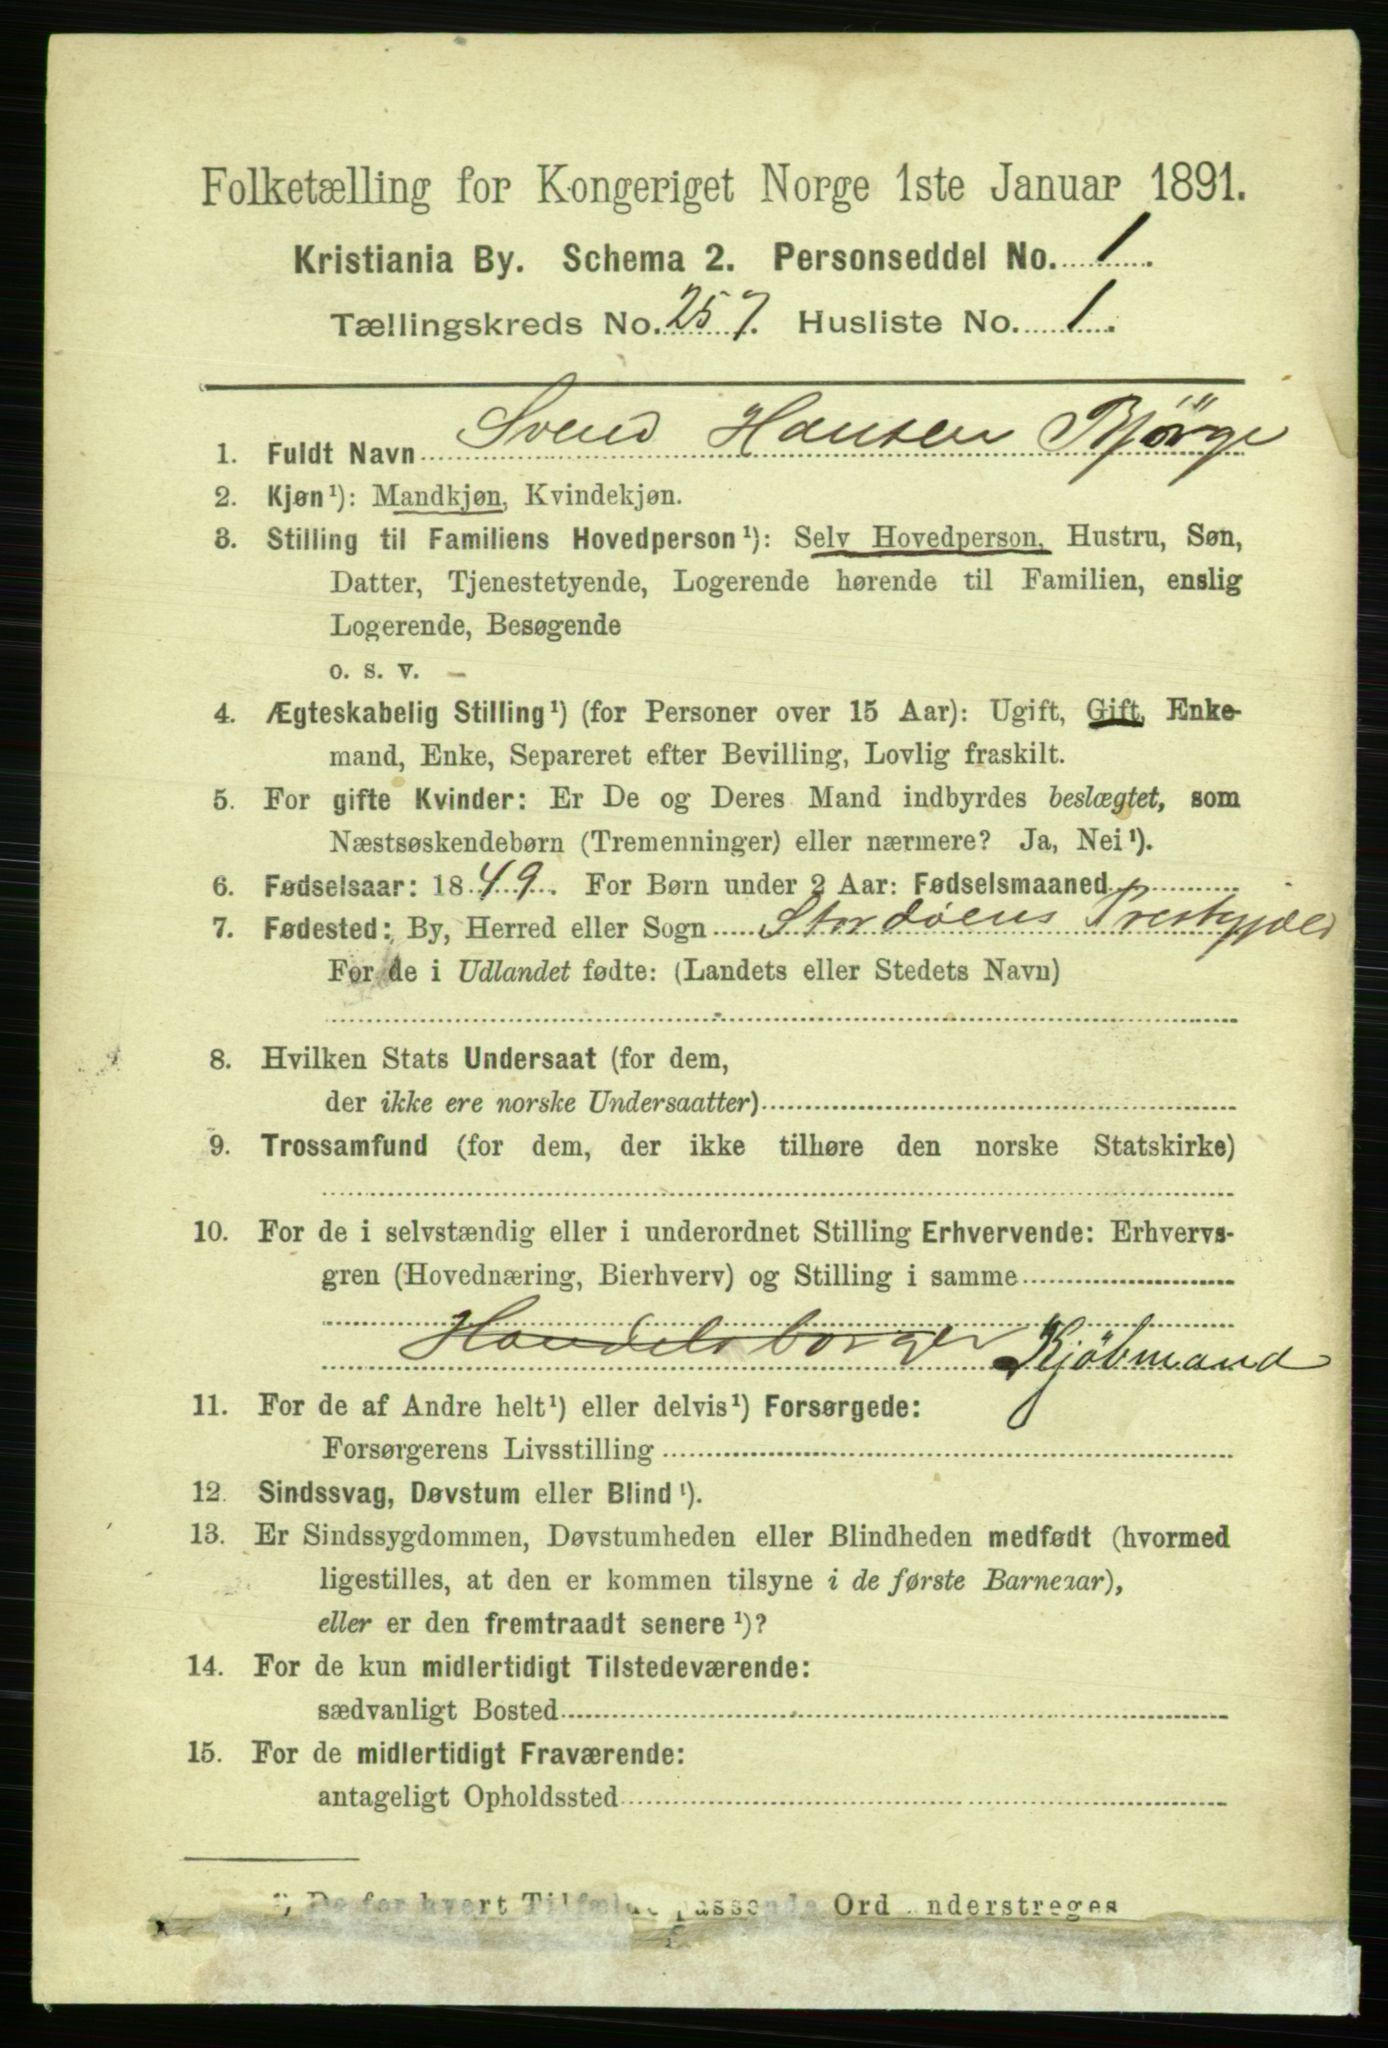 Folketælling for Kongeriget Norge 1ste Januar 1891.
Kristiania By. Schema 2. Personseddel No. 1.
Tællingskreds No. 257. Husliste No. 1.
1. Fuldt Navn Svend Hansen Bjørge
2. Kjøn¹): Mandkjøn, Kvindekjøn.
3. Stilling til Familiens Hovedperson¹): Selv Hovedperson, Hustru, Søn,
Datter, Tjenestetyende, Logerende hørende til Familien, enslig
Logerende, Besøgende
o. s. v. –
4. Ægteskabelig Stilling¹) (for Personer over 15 Aar): Ugift, Gift, Enke-
mand, Enke, Separeret efter Bevilling, Lovlig fraskilt.
5. For gifte Kvinder: Er De og Deres Mand indbyrdes beslægtet, som
Næstsøskendebørn (Tremenninger) eller nærmere? Ja, Nei¹).
6. Fødselsaar: 1849. For Børn under 2 Aar: Fødselsmaaned
7. Fødested: By, Herred eller Sogn Stordöens Prestegjæld
For de i Udlandet fødte: (Landets eller Stedets Navn)
8. Hvilken Stats Undersaat (for dem,
der ikke ere norske Undersaatter)
9. Trossamfund (for dem, der ikke tilhøre den norske Statskirke)
10. For de i selvstændig eller i underordnet Stilling Erhvervende: Erhvervs-
gren (Hovednæring, Bierhverv) og Stilling i samme
Handelsborger Kjöbmand
11. For de af Andre helt¹) eller delvis¹) Forsørgede:
Forsørgerens Livsstilling
12. Sindssvag, Døvstum eller Blind¹).
13. Er Sindssygdommen, Døvstumheden eller Blindheden medfødt (hvormed
ligestilles, at den er kommen tilsyne i de første Barneaar),
eller er den fremtraadt senere¹)?
14. For de kun midlertidigt Tilstedeværende:
sædvanligt Bosted
15. For de midlertidigt Fraværende:
antageligt Opholdssted
¹) De for hvert Tilfælde passende Ord understreges